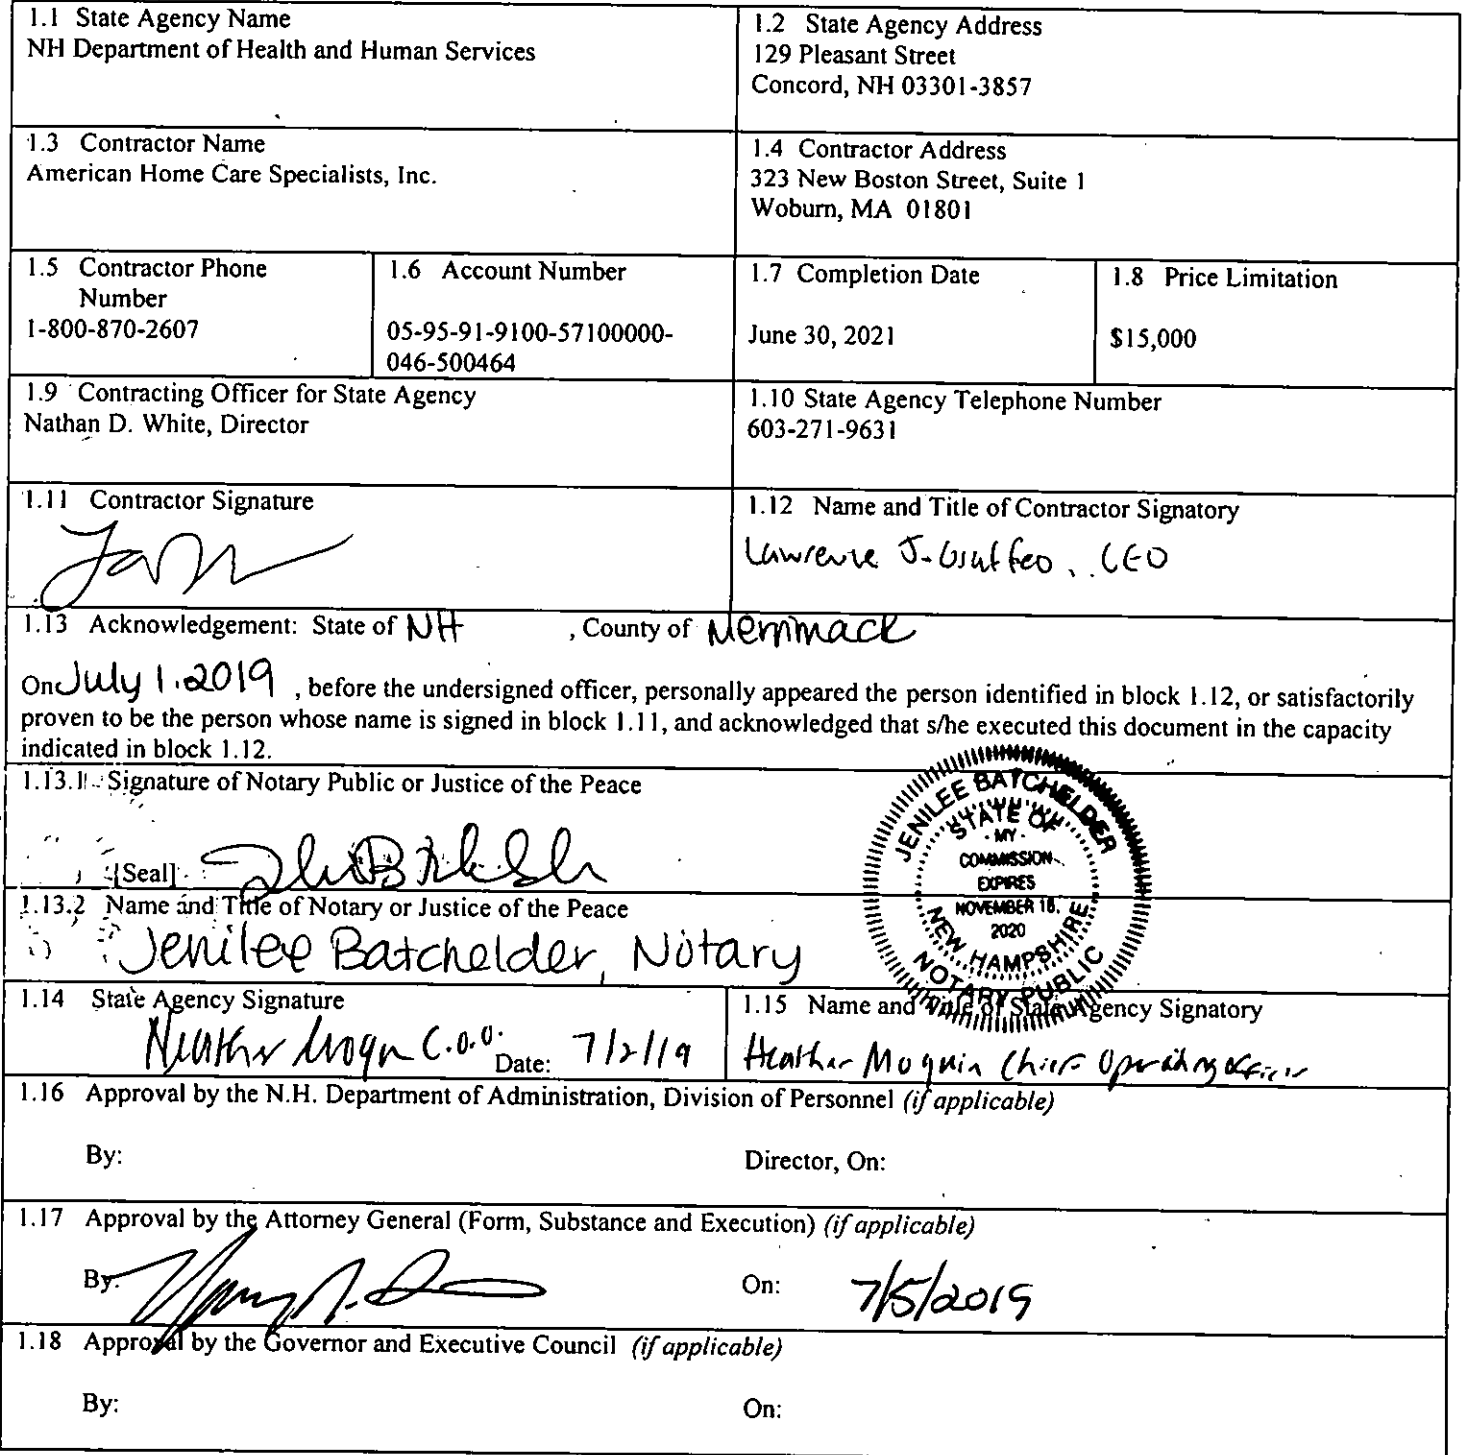 1.1 State Agency Name
NH Department of Health and Human Services
1.2 State Agency Address
129 Pleasant Street
Concord, NH 03301-3857
1.3 Contractor Name
American Home Care Specialists, Inc.
1.4 Contractor Address
323 New Boston Street, Suite 1
Woburn, MA 01801
1.5 Contractor Phone
Number
1-800-870-2607
1.6 Account Number
05-95-91-9100-57100000-
046-500464
1.7 Completion Date
June 30, 2021
1.8 Price Limitation
$15,000
1.9 Contracting Officer for State Agency
Nathan D. White, Director
1.10 State Agency Telephone Number
603-271-9631
1.11 Contractor Signature
1.12 Name and Title of Contractor Signatory
Lawrence J. , CEO
1.13 Acknowledgement: State of NH , County of Merrimack
On July 1.2019 , before the undersigned officer, personally appeared the person identified in block 1.12, or satisfactorily
proven to be the person whose name is signed in block 1.11, and acknowledged that s/he executed this document in the capacity
indicated in block 1.12.
1.13.1 Signature of Notary Public or Justice of the Peace
[Seal]
JENILEE BATCHELDER
STATE OF
MY
COMMISSION
EXPIRES
NOVEMBER 18,
2020
NEW HAMPSHIRE
NOTARY PUBLIC
1.13.2 Name and Title of Notary or Justice of the Peace
Jenilee Batchelder, Notary
1.14 State Agency Signature
Heather Moquin C.O.O.
Date: 7/2/19
1.15 Name and Title of State Agency Signatory
Heather Moquin Chief Operating Officer
1.16 Approval by the N.H. Department of Administration, Division of Personnel (if applicable)
By: Director, On:
1.17 Approval by the Attorney General (Form, Substance and Execution) (if applicable)
By: On: 7/5/2019
1.18 Approval by the Governor and Executive Council (if applicable)
By: On: